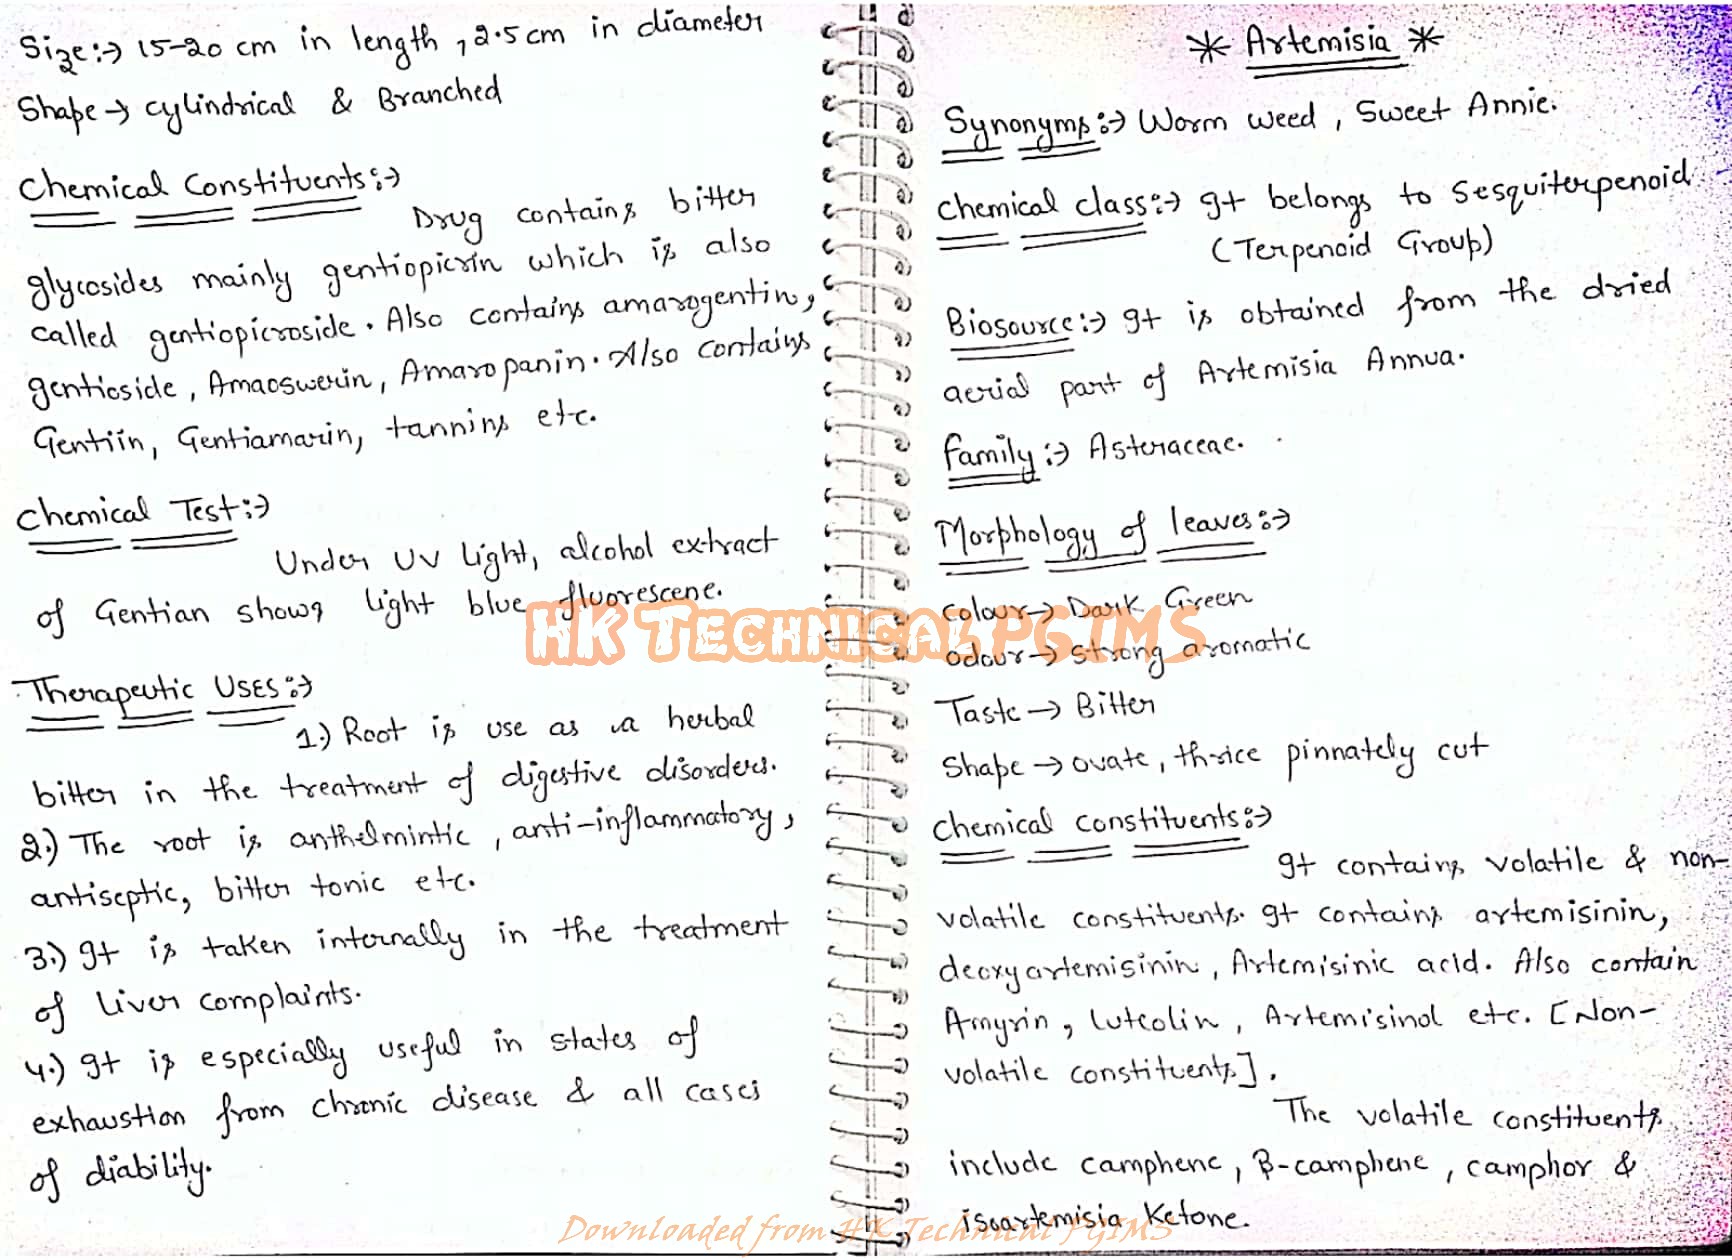 Size:→ 15-20 cm in length, 2.5 cm in diameter
Shape → cylindrical & Branched
Chemical Constituents:→
Drug contains bitter
glycosides mainly gentiopicrin which is also
called gentiopicroside. Also contains amarogentin,
gentioside, Amaoswerin, Amaropanin. Also contains
Gentiin, Gentiamarin, tannins etc.
Chemical Test:→
Under UV light, alcohol extract
of Gentian shows light blue fluorescene.
Therapeutic Uses:→
1.) Root is use as a herbal
bitter in the treatment of digestive disorders.
2.) The root is anthelmintic, anti-inflammatory,
antiseptic, bitter tonic etc.
3.) It is taken internally in the treatment
of liver complaints.
4.) It is especially useful in states of
exhaustion from chronic disease & all cases
of diability.
* Artemisia *
Synonyms:→ Worm weed, Sweet Annie.
Chemical class:→ It belongs to Sesquiterpenoid
(Terpenoid Group)
Biosource:→ It is obtained from the dried
aerial part of Artemisia Annua.
Family:→ Asteraceae.
Morphology of leaves:→
Colour → Dark Green
Odour → Strong aromatic
Taste → Bitter
Shape → ovate, thrice pinnately cut
Chemical constituents:→
It contains volatile & non-
volatile constituents. It contains artemisinin,
deoxyartemisinin, Artemisinic acid. Also contain
Amyrin, luteolin, Artemisinol etc. [Non-
volatile constituents].
The volatile constituents
include camphene, B-camphene, camphor &
isoartemisia Ketone.
HK Technical PGIMS
Downloaded from HK Technical PGIMS